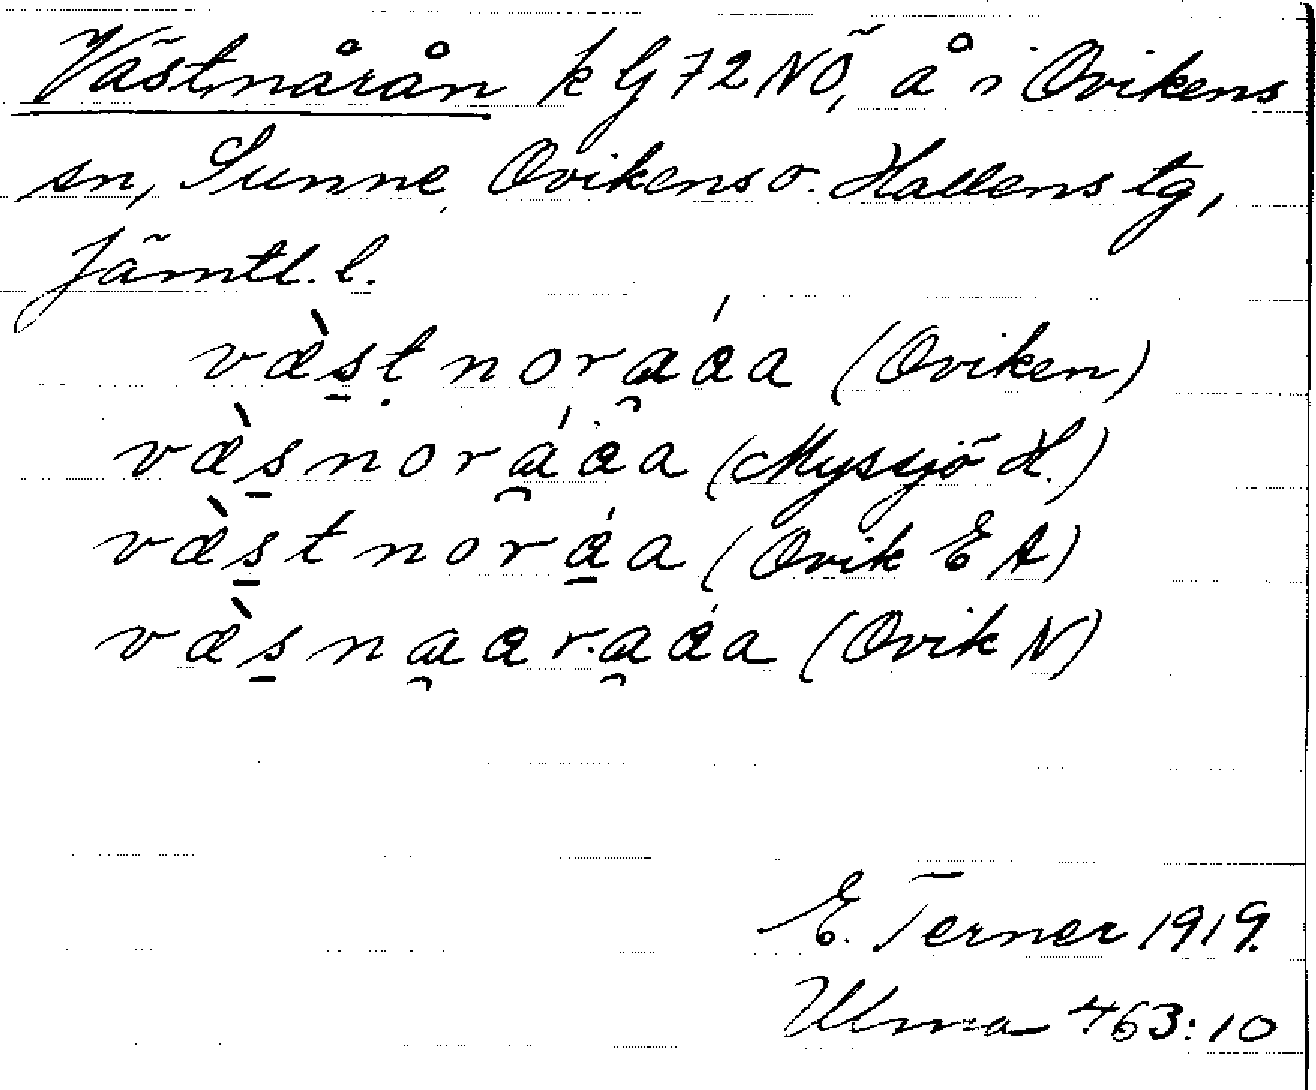 Västnårån k G 72 NÖ, å i Ovikens
sn, Sunne, Ovikens o. Hallens tg,
Jämtl. l.
væ̀s̠ṭ nora̯áa (Oviken)
væ̀s̠nora̯áa (Myssjö H.)
væ̀s̠t norá̠a (Ovik E A)
væ̀s̠na̯ara̯áa (Ovik N)
E. Terner 1919.
Ulma 463:10